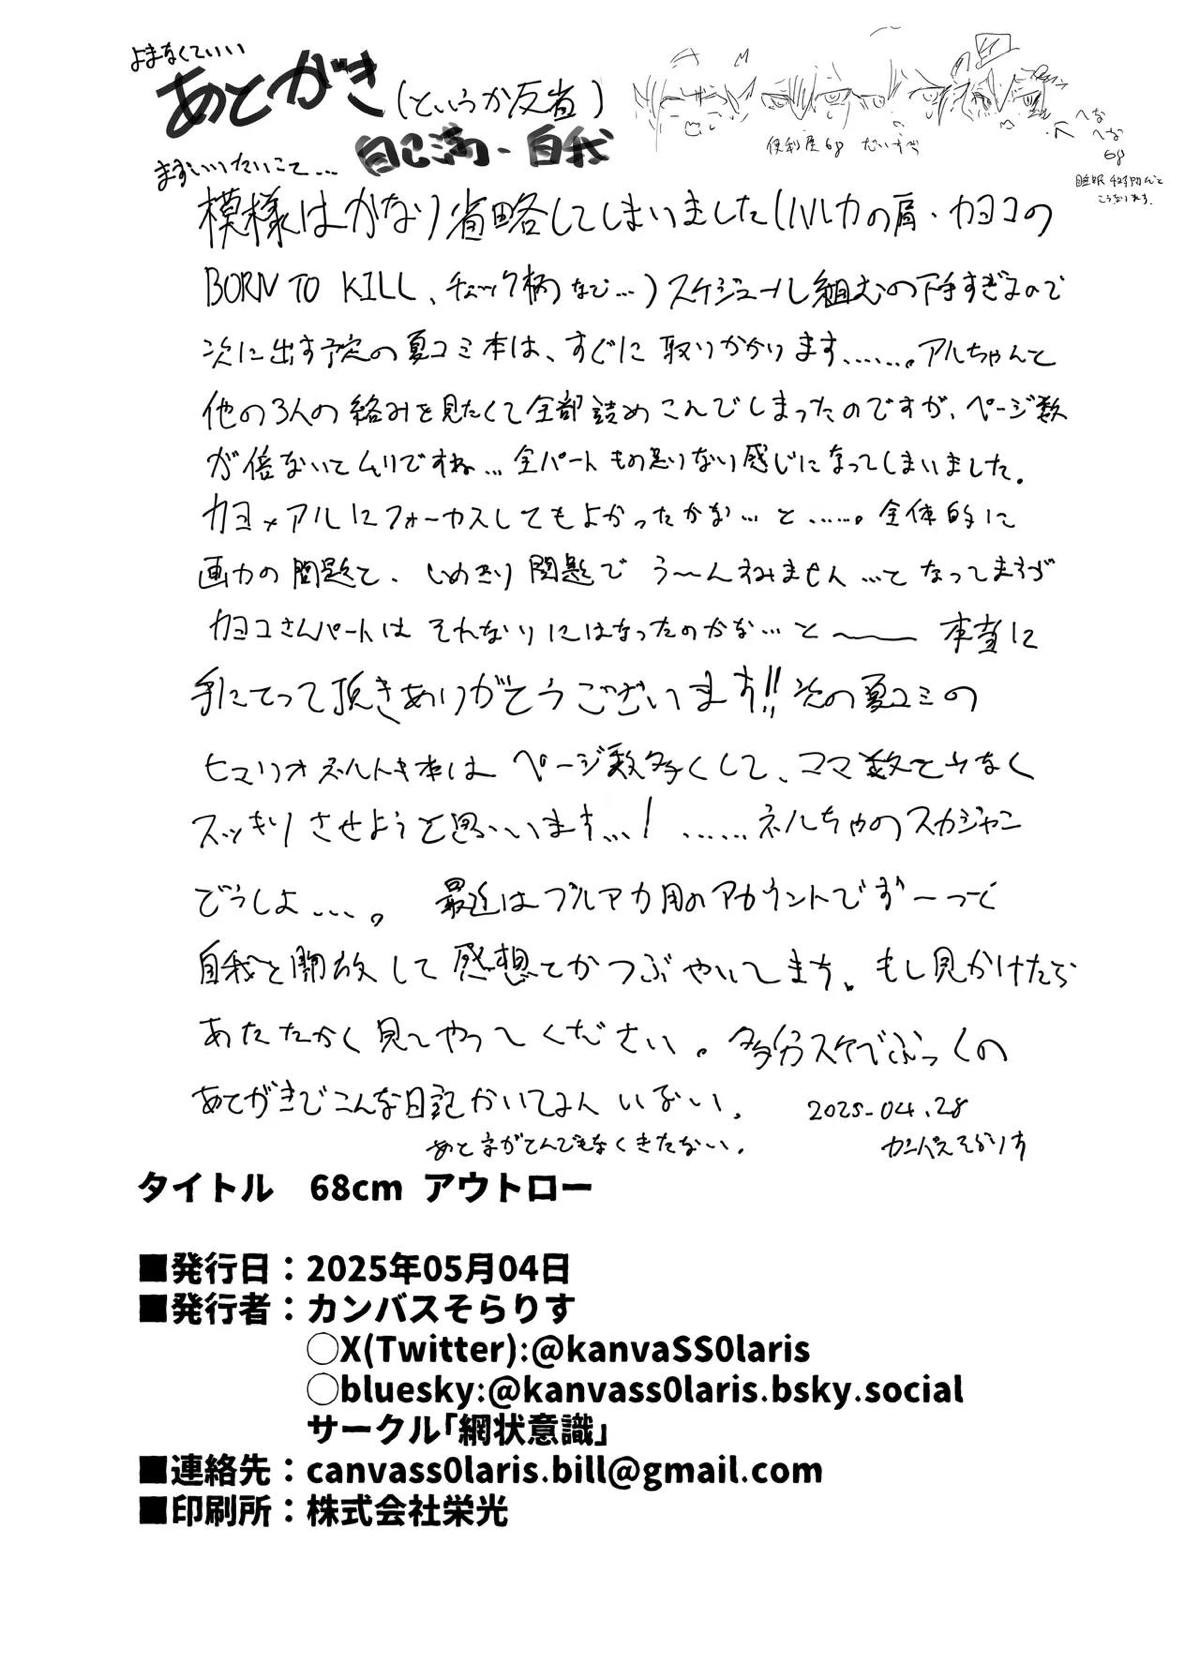 よまなくていい
あとがき(というか反省)
自己満-自我
便利屋68 だいすき
へなへな68
まずいいたいこと…
模様はかなり省略してしまいました(ハルカの肩・カヨコの
BORN TO KILL、チェック柄など…)スケジュール組むの下手すぎるので
次に出す予定の夏コミ本は、すぐに取りかかります……。アルちゃんと
他の3人の絡みを見たくて全部詰めこんでしまったのですが、ページ数
が倍ないとムリですね…全パートもの足りない感じになってしまいました。
カヨ×アルにフォーカスしてもよかったかな…と……。全体的に
画力の問題と、しめきり問題でう〜んすみません…となってますが
カヨコさんパートはそれなりにはなったのかな…と〜 本当に
手にとって頂きありがとうございます!!次の夏コミの
ヒマリオネルトキ本はページ数多くして、コマ数を少なく
スッキリさせようと思います…! ……ネルちゃんのスカジャン
どうしよ…。 最近はブルアカ用のアカウントでずーっと
自我を開放して感想とかつぶやいてます。もし見かけたら
あたたかく見てやってください。多分スケベぶっくの
あとがきでこんな日記かいてる人いない。 2025-04.28
あと字がとんでもなくきたない。 カンバスそらりす
タイトル 68cm アウトロー
■発行日:2025年05月04日
■発行者:カンバスそらりす
○X(Twitter):@kanvaSS0laris
○bluesky:@kanvass0laris.bsky.social
サークル「網状意識」
■連絡先:canvass0laris.bill@gmail.com
■印刷所:株式会社栄光